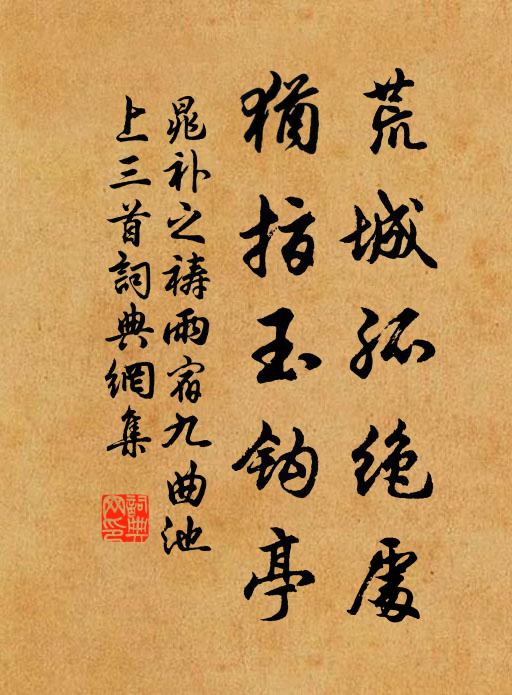 荒城孤绝處
猶指玉钩亭
晁补之祷雨宿九曲池
上三首詞典網集
詞典网印